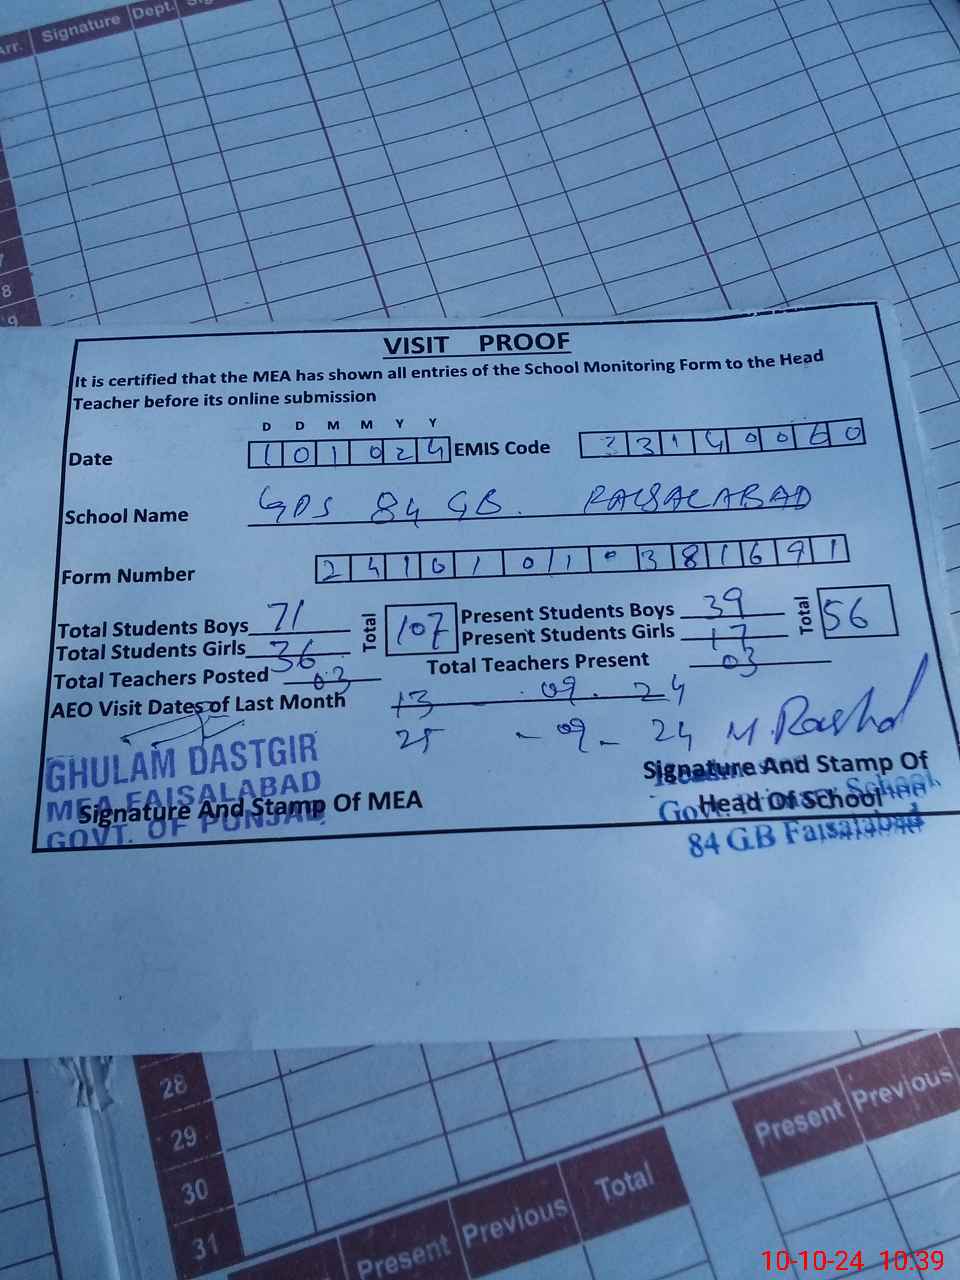 Arr. Signature Dept.
8
9
VISIT PROOF
It is certified that the MEA has shown all entries of the School Monitoring Form to the Head
Teacher before its online submission
D D M M Y Y
Date 101024 EMIS Code 33140060
School Name GPS 84 GB. FAISALABAD
Form Number 24101010381691
Total Students Boys 71 Total 107 Present Students Boys 39 Total 56
Total Students Girls 36 Present Students Girls 17
Total Teachers Posted 03 Total Teachers Present 03
AEO Visit Dates of Last Month 13 . 09 . 24
25 - 09 - 24 M. Rashd
GHULAM DASTGIR
MEA FAISALABAD
GOVT. OF PUNJAB
Signature And Stamp Of MEA
Signature And Stamp Of
Head Of School
School
84 G.B Faisalabad
28
29
30
31
Present Previous Total
Present Previous
10-10-24 10:39